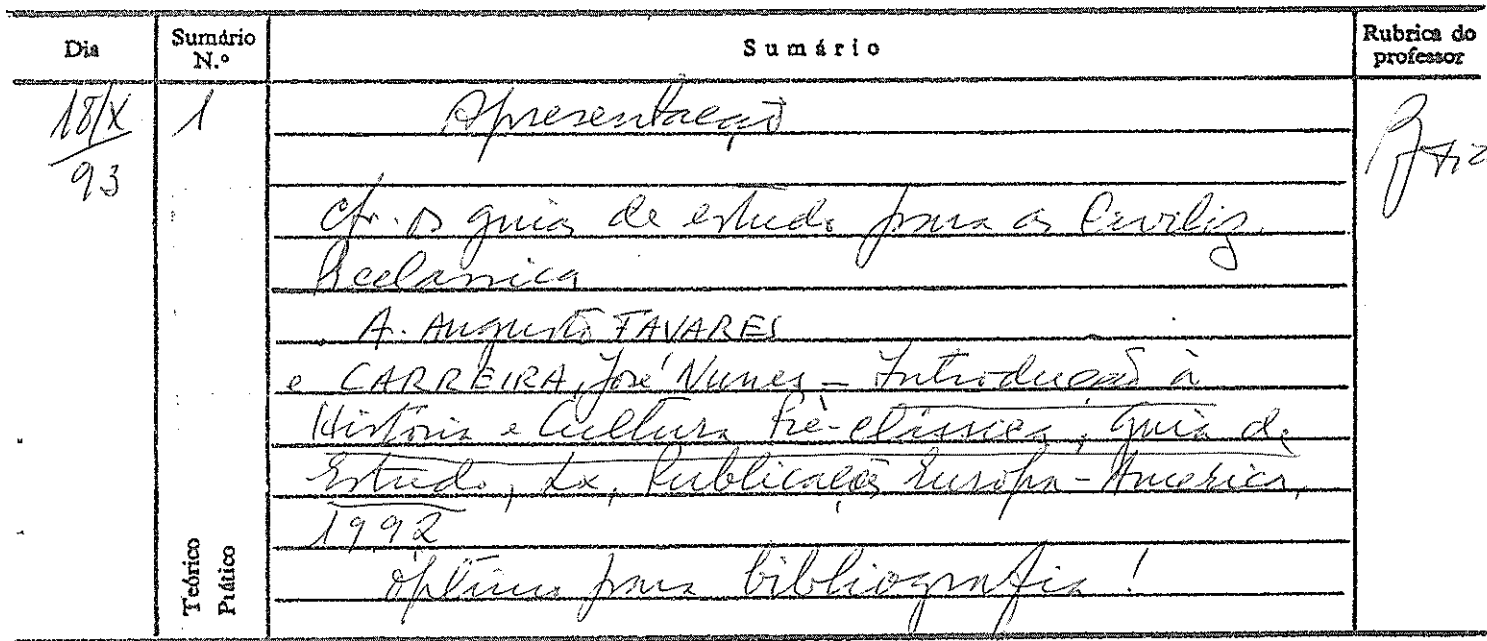 Dia Sumário N.º Sumário Rubrica do professor
18/X 1 Apresentação
93
cfr. os guias de estudo para as Civiliz.
Préclássica
A. Augusto TAVARES
e CARREIRA, José Nunes - Introdução à
História e Cultura Pré-clássica, guia de
Estudo, Lx, Publicações Europa-America,
1992
óptimo para bibliografia!
Teórico
Prático